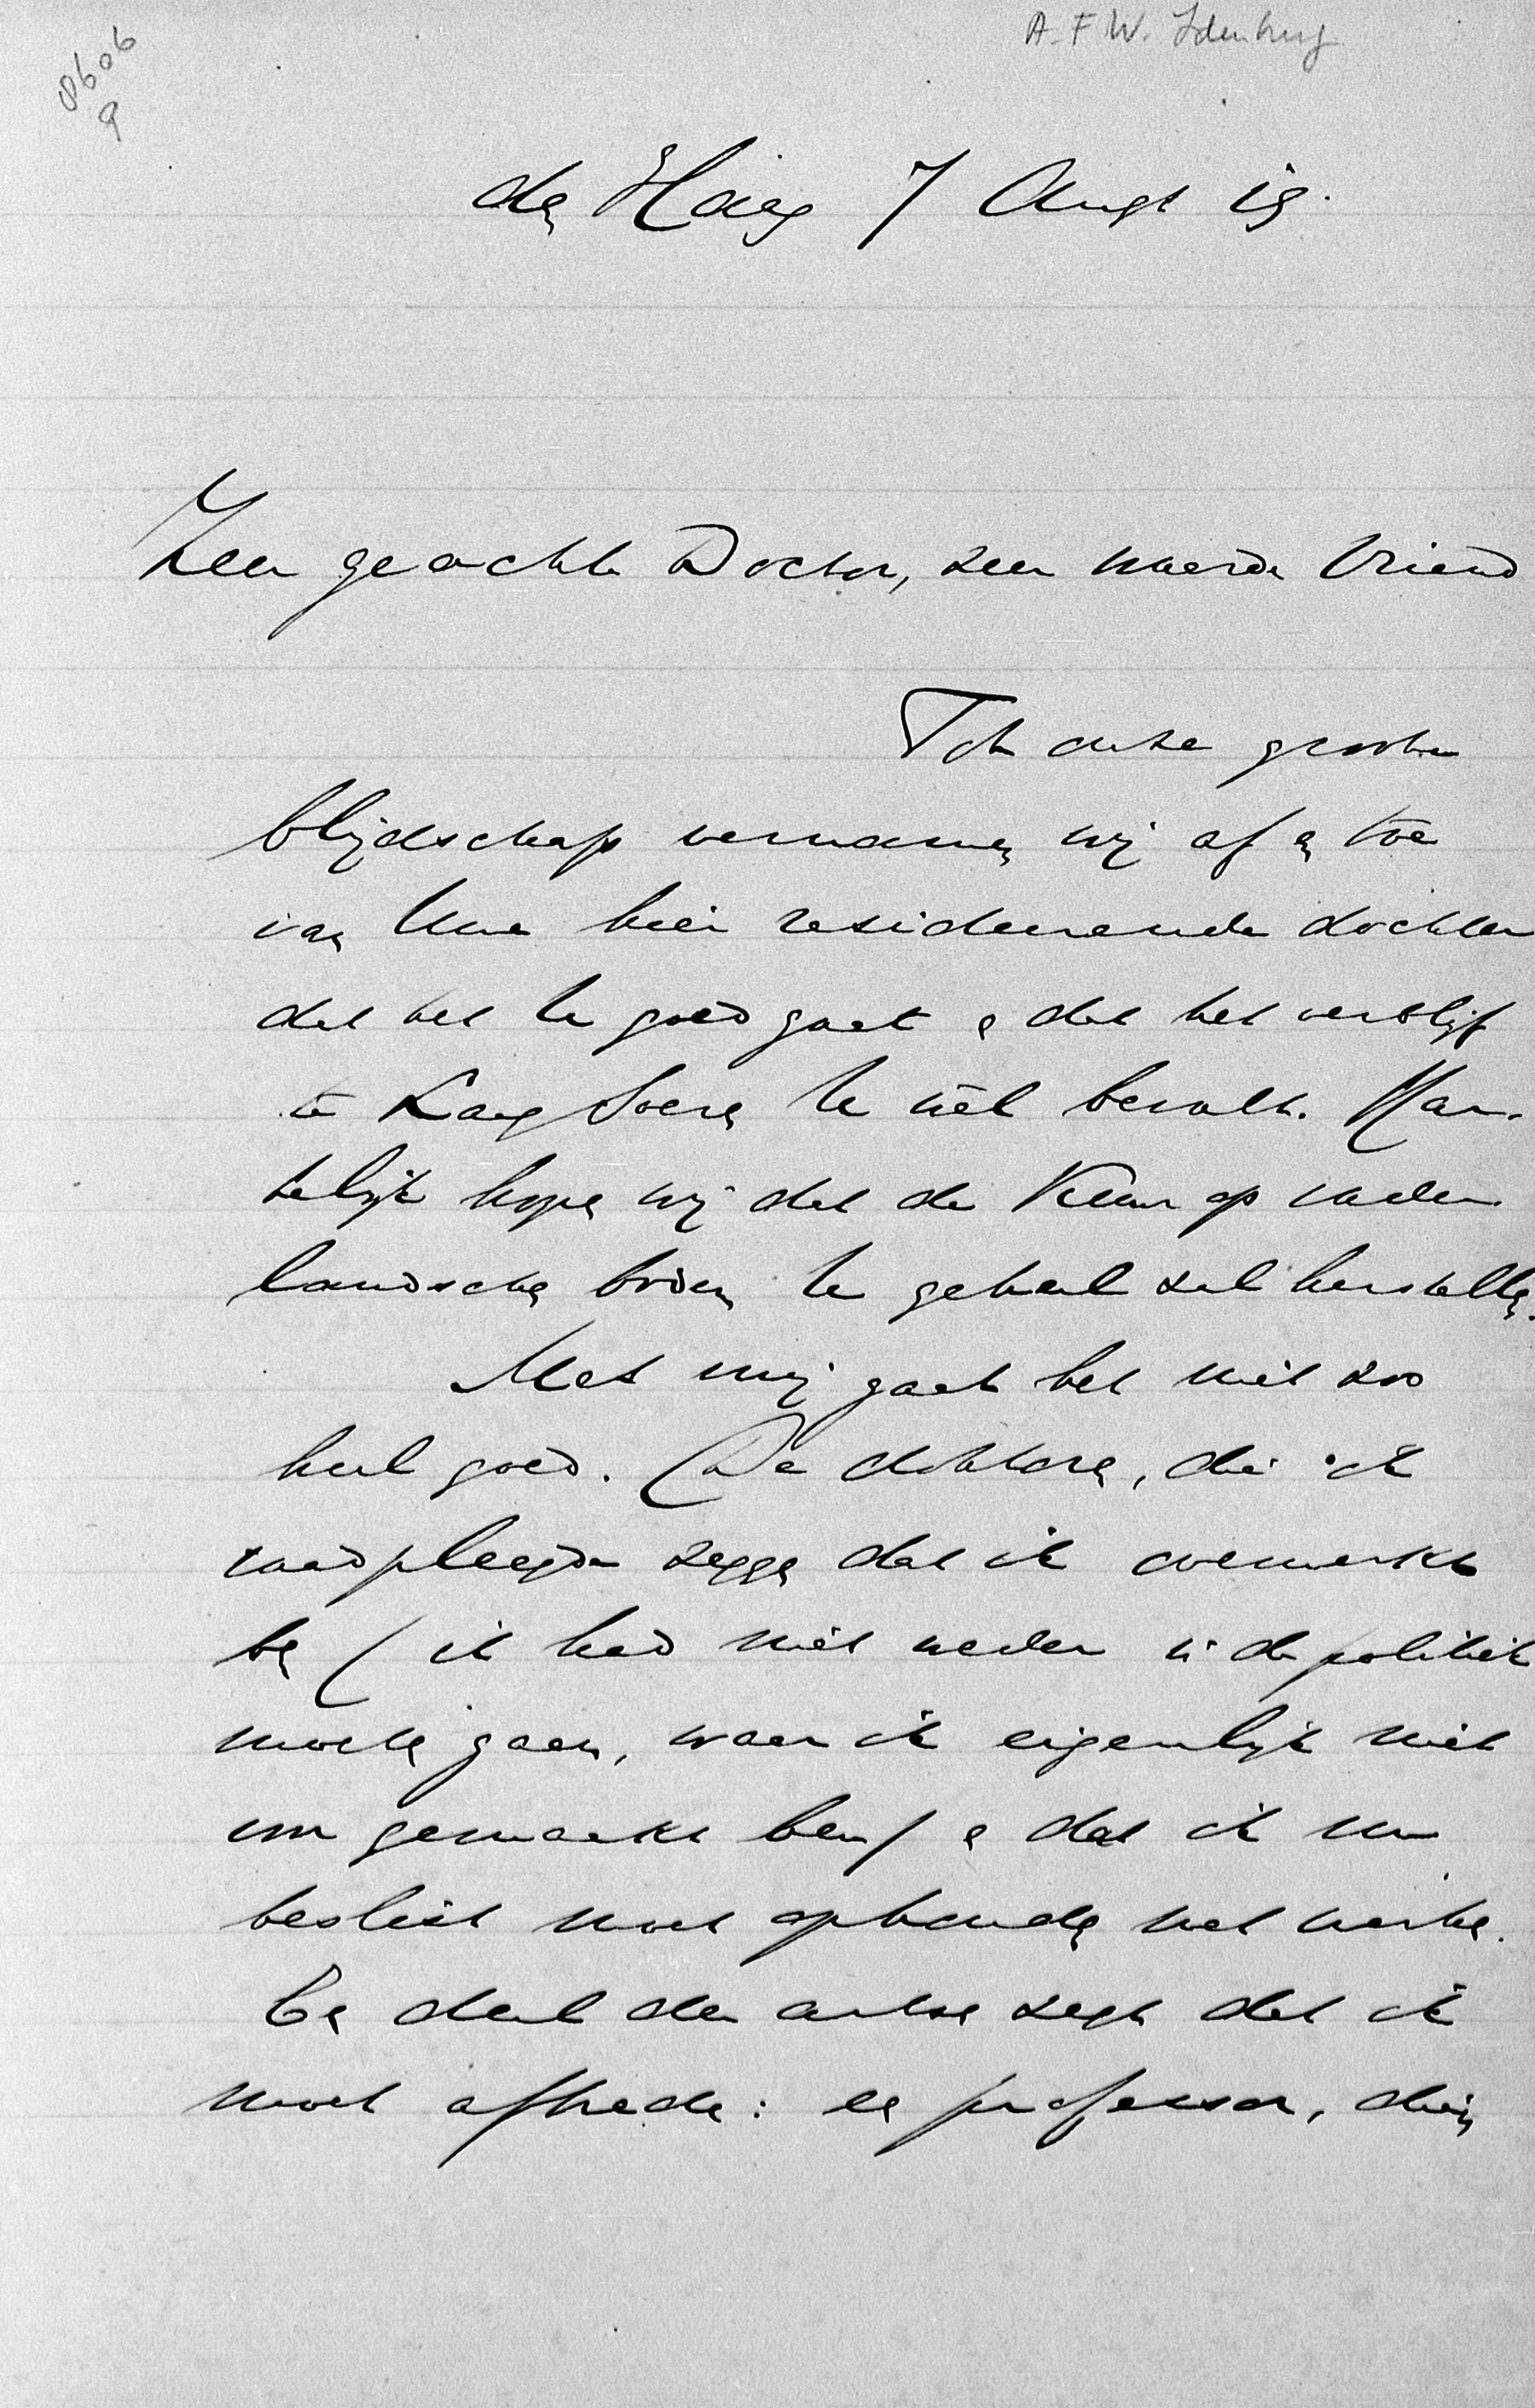 A.F.W. Idenburg
8606
9
den Haag 7 Augt 19.
Zeer geachte Doctor, zeer waarde Vriend
Tot onze groote
blijdschap vernamen wij af en toe
van Uwe hier resideerende dochter
dat het U goed gaat en dat het verblijf
te Laag Soeren U wèl bevalt. Har-
telijk hopen wij dat de Kuur op vader-
landschen bodem U geheel zal herstellen.
Met mij gaat het niet zoo
heel goed. De doktoren, die ik
raadpleegde zeggen dat ik overwerkt
ben (ik had niet weder in de politiek
moeten gaan, waar ik eigenlijk niet
voor gemaakt ben) en dat ik nu
beslist moet ophouden met werken.
Een deel der artsen zegt dat ik
moet aftreden: een professor, dien